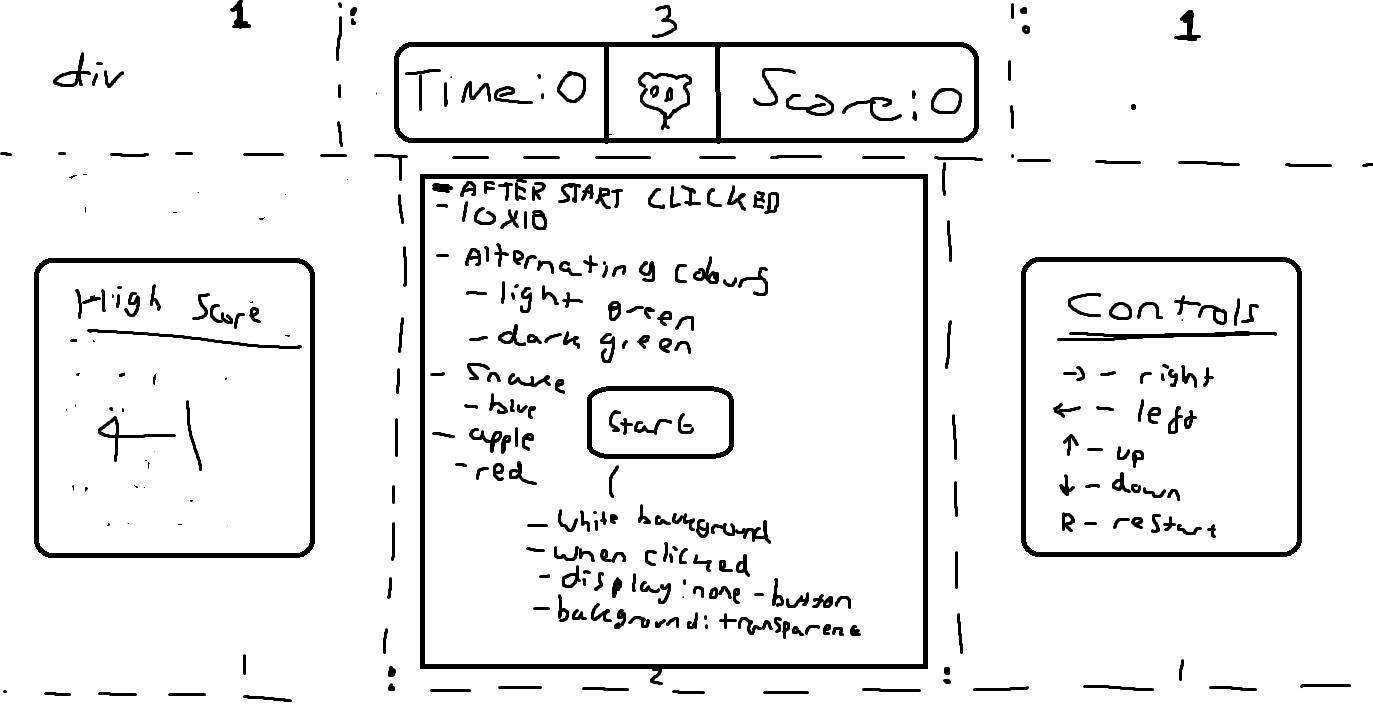 1 : 3 : 1
div
Time:0 Score:0
- AFTER START CLICKED
- 10X10
- Alternating colours
- light green
- dark green
- Snake
- blue
- apple
- red
Start
- white background
- when clicked
- display:none - button
- background: transparent
High Score
Controls
→ - right
← - left
↑ - up
↓ - down
R - restart
1 : 2 : 1